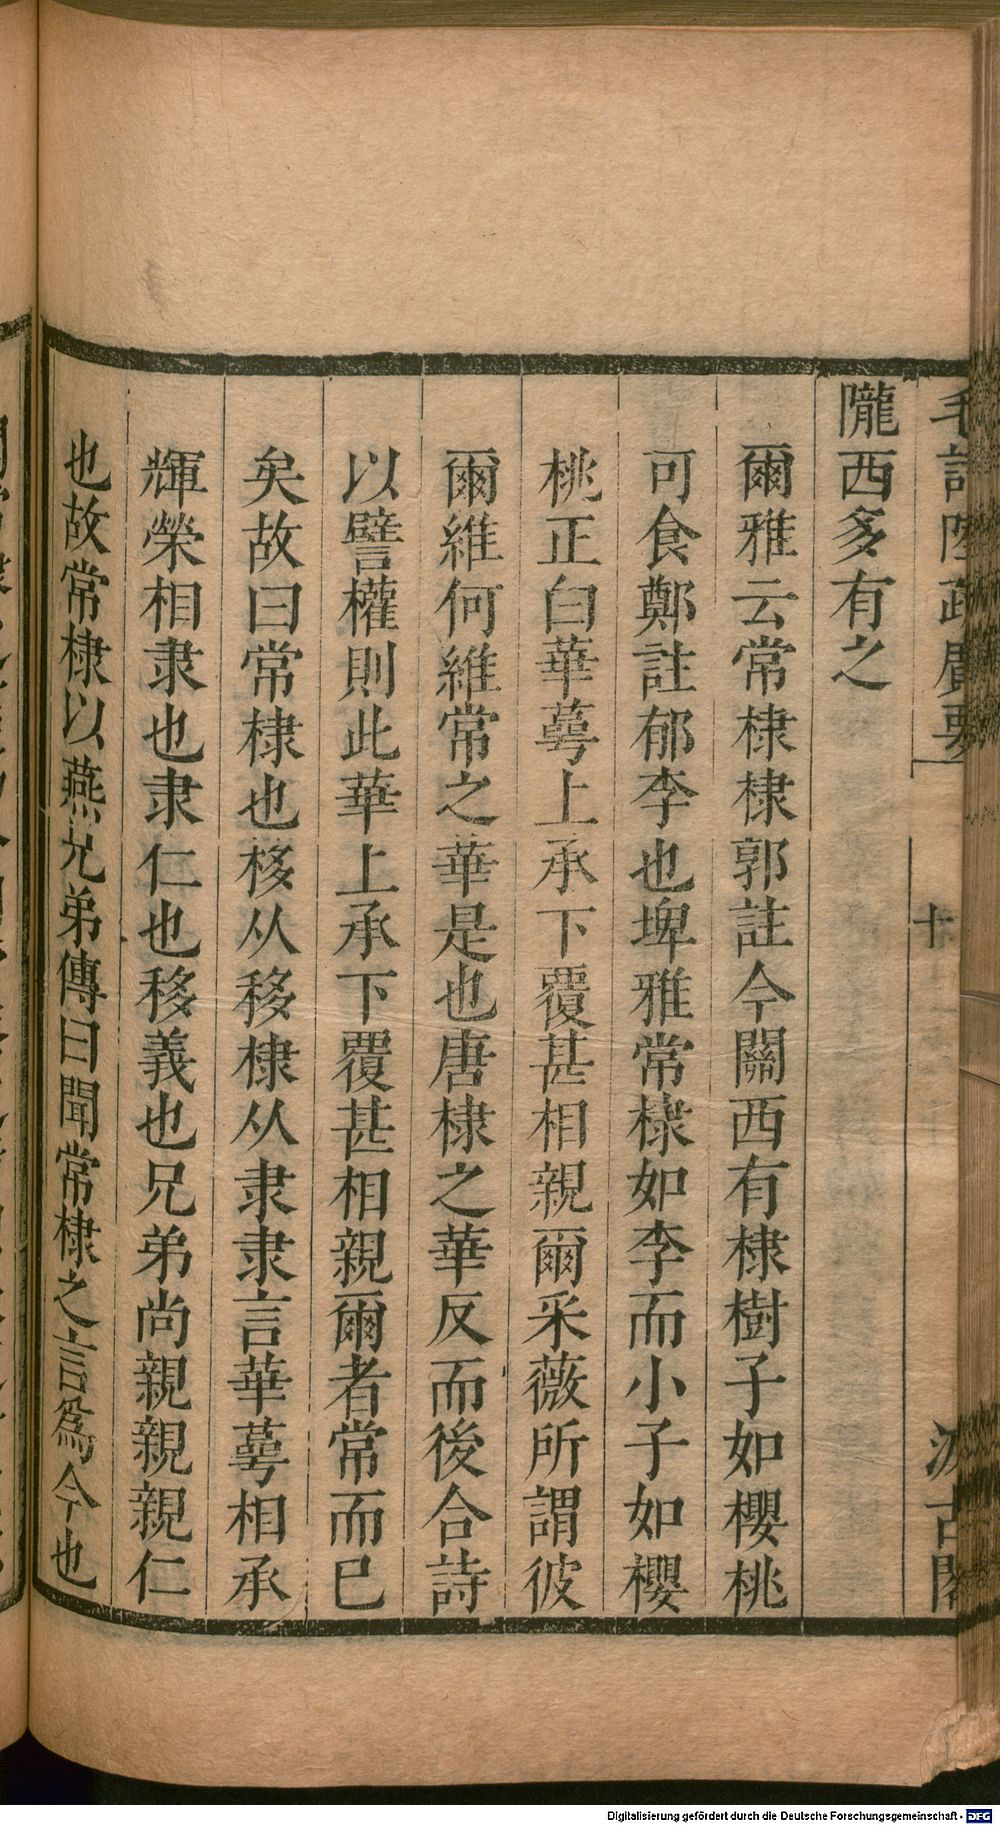 毛詩陸疏廣要
十
汲古閣
隴西多有之
爾雅云常棣棣郭註今關西有棣樹子如櫻桃
可食鄭註郁李也埤雅常棣如李而小子如櫻
桃正白華萼上承下覆甚相親爾采薇所謂彼
爾維何維常之華是也唐棣之華反而後合詩
以譬權則此華上承下覆甚相親爾者常而已
矣故曰常棣也栘从移棣从隶隶言華萼相承
輝榮相隶也隶仁也移義也兄弟尚親親親仁
也故常棣以燕兄弟傳曰聞常棣之言爲今也
Digitalisierung gefördert durch die Deutsche Forschungsgemeinschaft - DFG